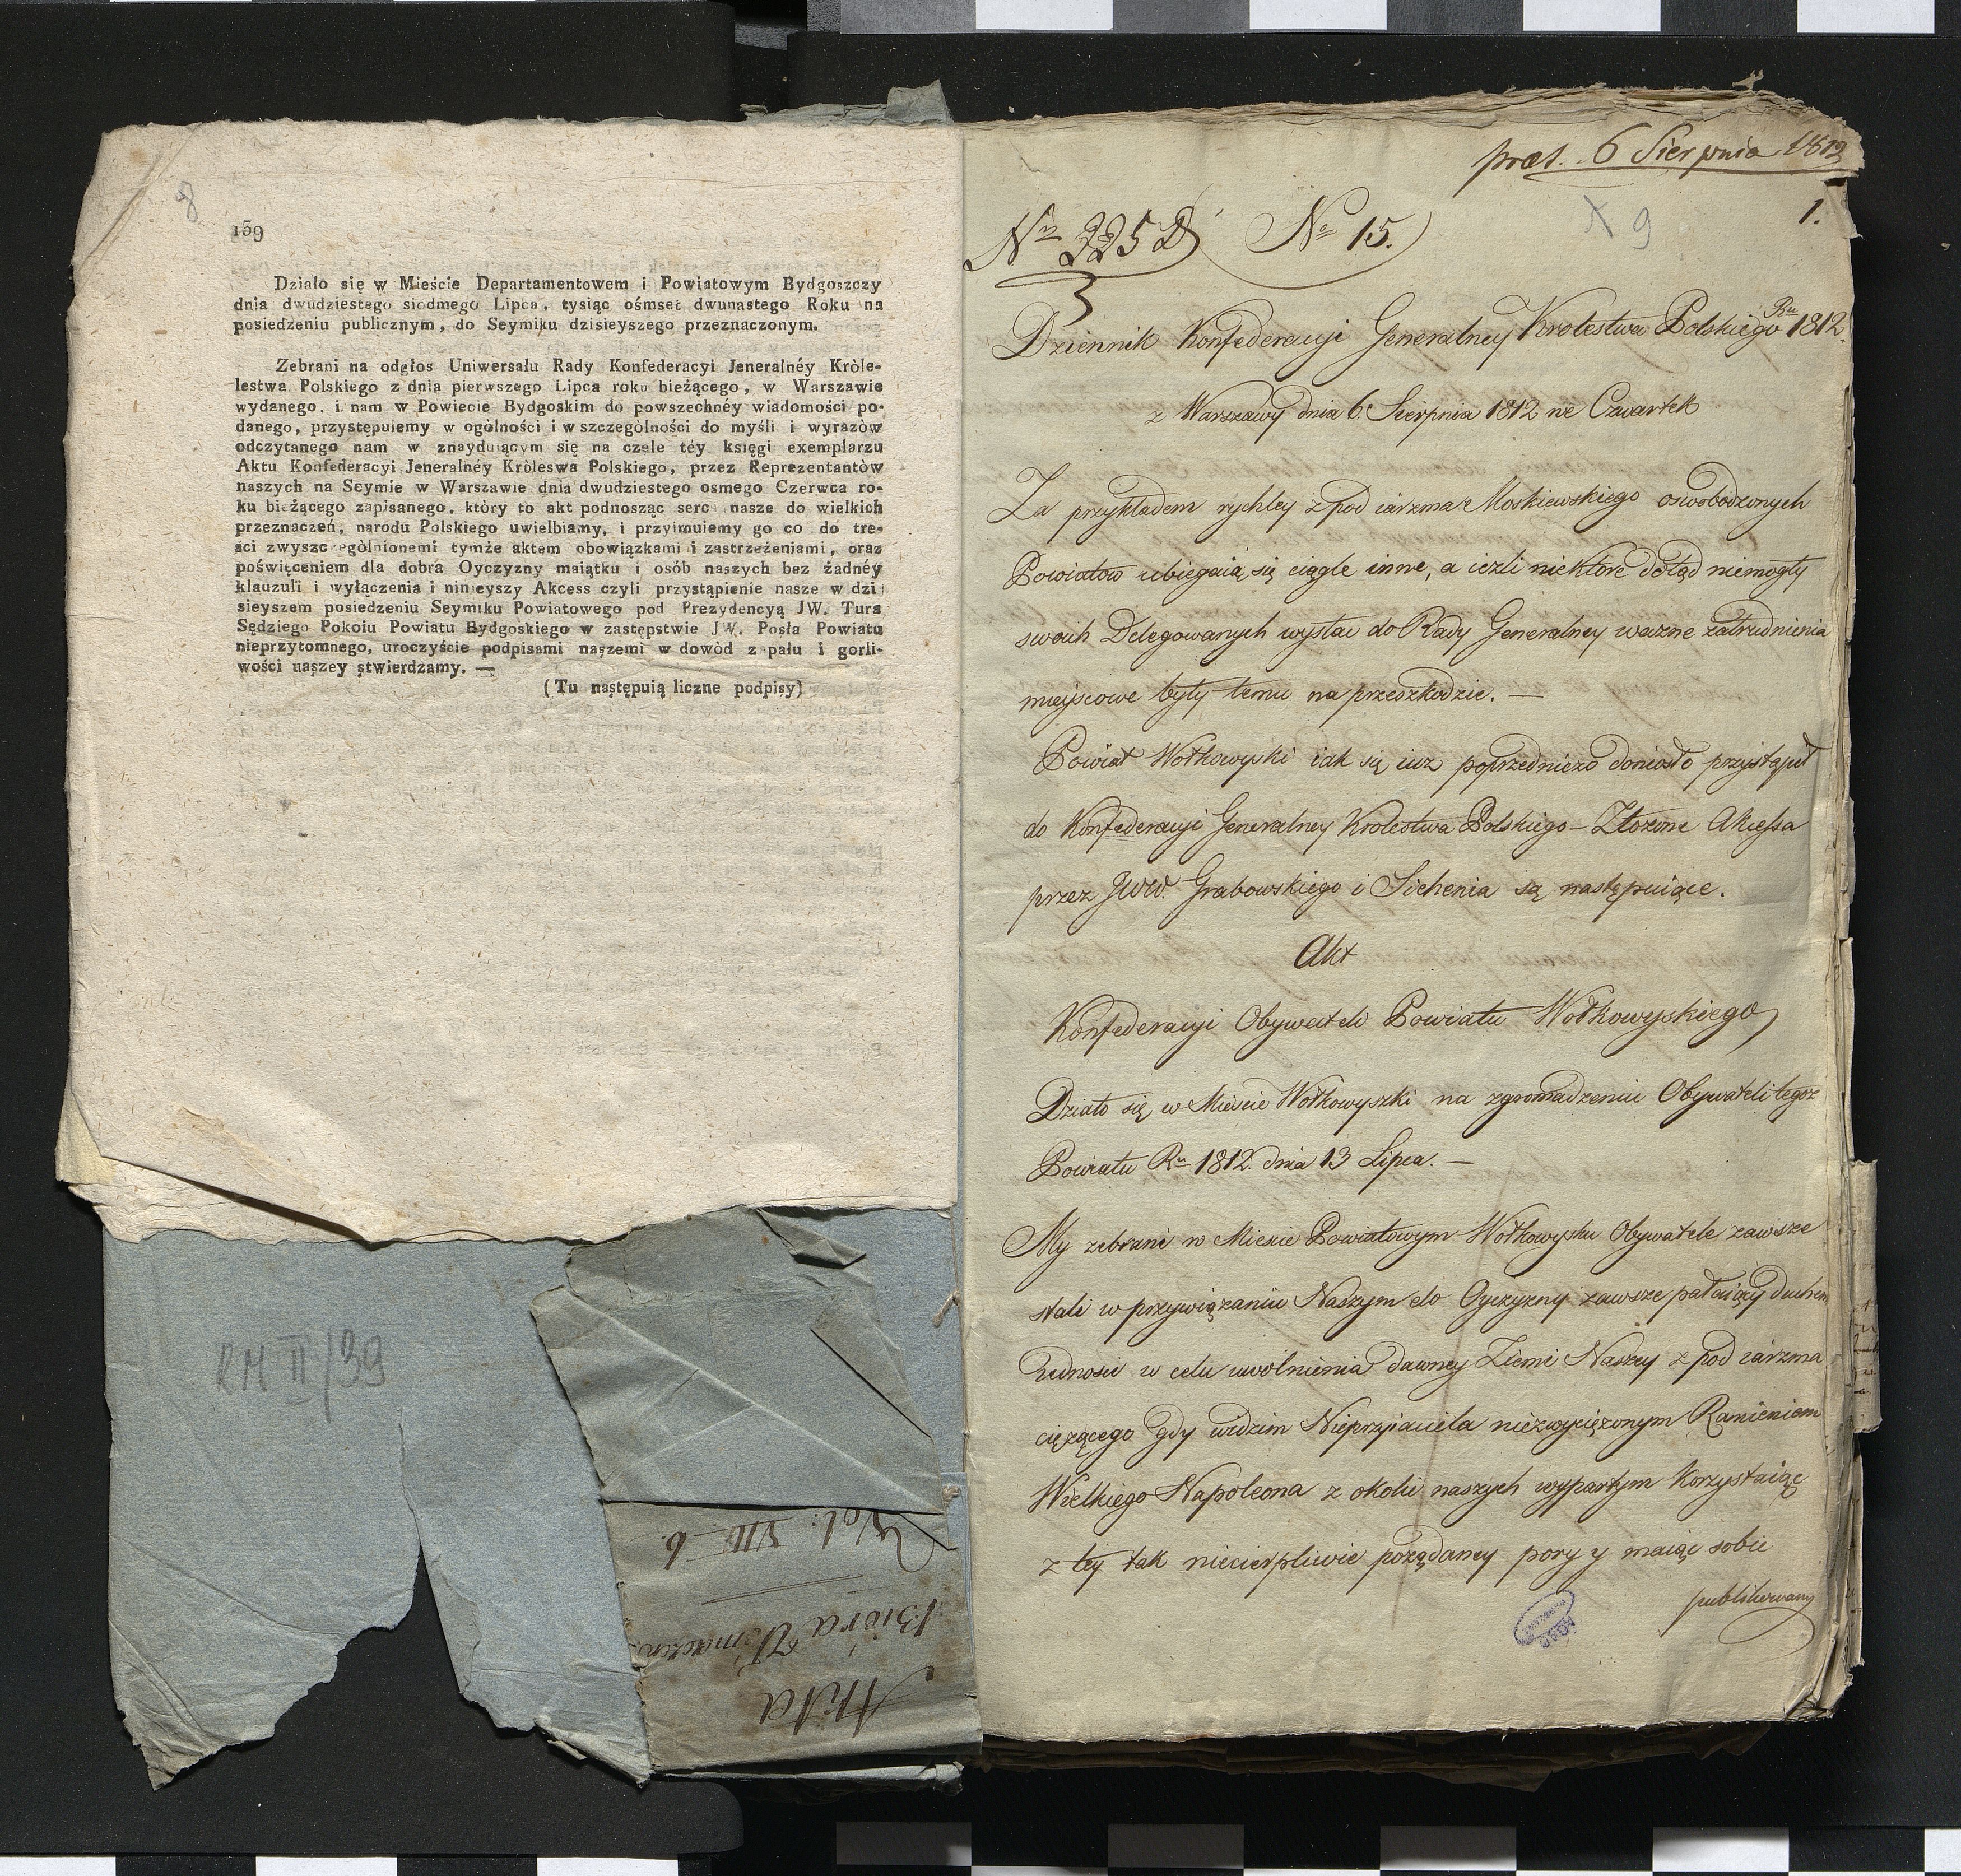 8
139
Działo się w Mieście Departamentowem i Powiatowym Bydgoszczy
dnia dwudziestego siodmego Lipca, tysiąc ośmset dwunastego Roku na
posiedzeniu publicznym, do Seymiku dzisieyszego przeznaczonym.
Zebrani na odgłos Uniwersału Rady Konfederacyi Jeneralnéy Króle-
lestwa Polskiego z dnia pierwszego Lipca roku bieżącego, w Warszawie
wydanego, i nam w Powiecie Bydgoskim do powszechnéy wiadomości po-
danego, przystępuiemy w ogòlności i w szczegòlności do myśli i wyrazòw
odczytanego nam w znayduiącym się na czele téy księgi exemplarzu
Aktu Konfederacyi Jeneralnéy Króleswa Polskiego, przez Reprezentantòw
naszych na Seymie w Warszawie dnia dwudziestego osmego Czerwca ro-
ku bieżącego zapisanego, który to akt podnosząc serca nasze do wielkich
przeznaczeń, narodu Polskiego uwielbiamy, i przyimuiemy go co do tre-
ści zwyszczegòlnionemi tymże aktem obowiązkami i zastrzeżeniami, oraz
poświęceniem dla dobra Oyczyzny maiątku i osób naszych bez żadnéy
klauzuli i wyłączenia i ninieyszy Akcess czyli przystąpienie nasze w dzi
sieyszem posiedzeniu Seymiku Powiatowego pod Prezydencyą JW. Tura
Sędziego Pokoiu Powiatu Bydgoskiego w zastępstwie JW. Posła Powiatu
nieprzytomnego, uroczyście podpisami naszemi w dowòd zapału i gorli-
wości naszey stwierdzamy. —
(Tu następuią liczne podpisy)
RM II/39
Akta
Bióra Tłomaczen
Vol: VIII b.
præs. 6 Sierpnia 1812
9
1.
No 15.
Dziennik Konfederacyi Generalney Krolestwa Polskiego Ru 1812.
z Warszawy dnia 6. Sierpnia 1812 we Czwartek
Za przykładem rychley z pod iarzma Moskiewskiego oswobodzonych
Powiatow ubiegaią się ciągle inne, a ieżli niektore dotąd niemogły
swoich Delegowanych wysłac do Rady Generalney wazne zatrudnienia
mieyscowe były temu na przeszkodzie. —
Powiat Wołkowyski iak się iuz poprzedniczo doniosło przystąpił
do Konfederacyi Generalney Krolestwa Polskiego – Złozone Akcessa
przez JWW. Grabowskiego i Sichenia są następuiące.
Akt
Konfederacyi Obywateli Powiatu Wołkowyskiego
Działo się w Mieście Wołkowyszki na zgromadzeniu Obywateli tegoz
Powiatu Ru 1812. dnia 13 Lipca. —
My zebrani w Miescie Powiatowym Wołkowysku Obywatele zawsze
stali w przywiązaniu Naszym do Oyczyzny zawsze pałaiący duchem
iednosci w celu uwolnienia dawney Ziemi Naszey z pod iarzma
ciężącego gdy widzim Nieprzyiaciela niezwyciężonym Ramieniem
Wielkiego Napoleona z okolic naszych wypartym Korzystaiąc
z tey tak niecierpliwie pożądaney pory y maiąc sobie
publikowany